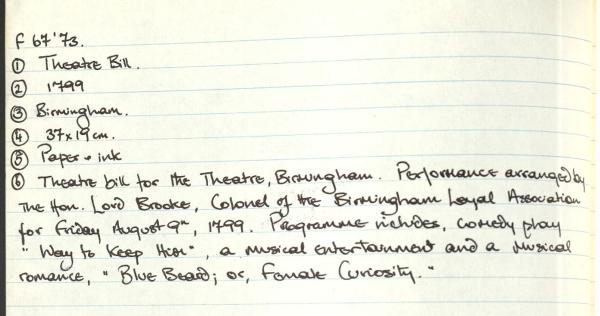 F 67'73.
① Theatre Bill.
② 1799
③ Birmingham.
④ 37x19cm.
⑤ Paper + ink
⑥ Theatre bill for the Theatre, Birmingham. Performance arranged by
The Hon. Lord Brooke, Colonel of the Birmingham Loyal Association
for Friday August 9th, 1799. Programme includes, comedy play
"Way to Keep Him", a musical entertainment and a musical
romance, "Blue Beard; or, Female Curiosity."